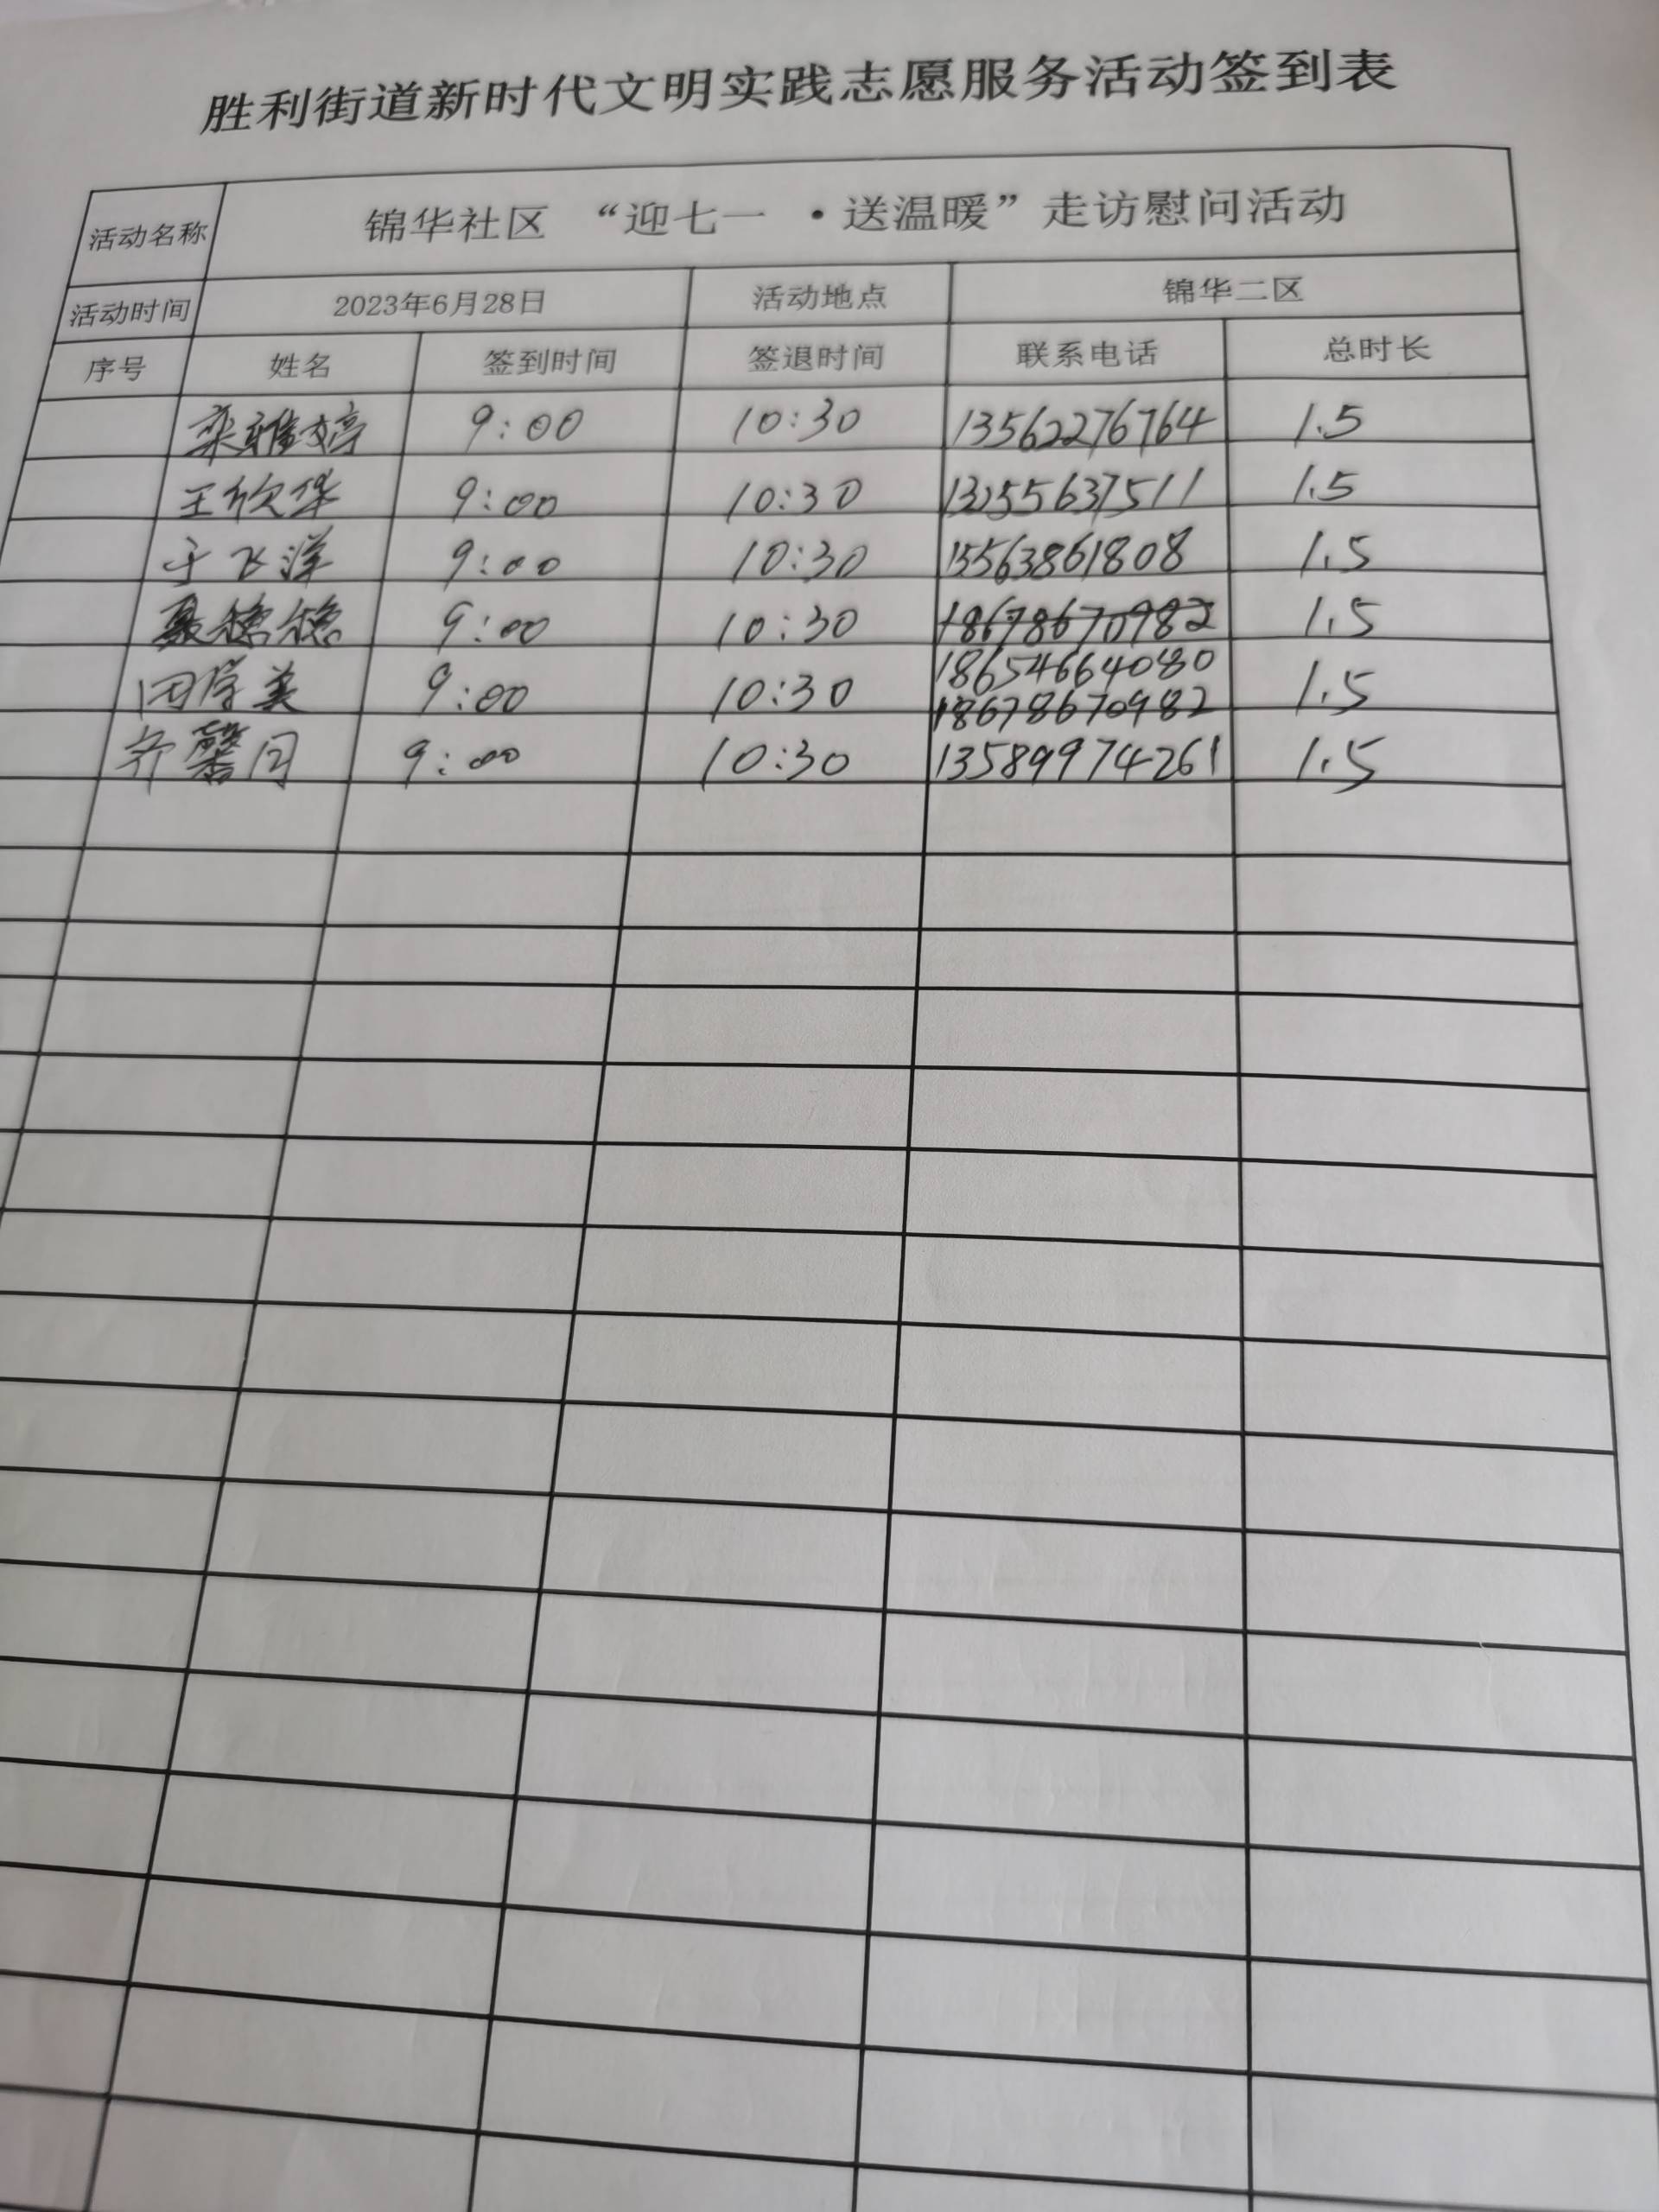 胜利街道新时代文明实践志愿服务活动签到表
活动名称 锦华社区 “迎七一 ·送温暖”走访慰问活动
活动时间 2023年6月28日 活动地点 锦华二区
序号 姓名 签到时间 签退时间 联系电话 总时长
栾雅婷 9:00 10:30 13562276764 1.5
王欣华 9:00 10:30 13255637511 1.5
于飞洋 9:00 10:30 15563861808 1.5
9:00 10:30 18678670982 1.5
18654664080
田学美 9:00 10:30 18678670982 1.5
齐馨月 9:00 10:30 13589974261 1.5